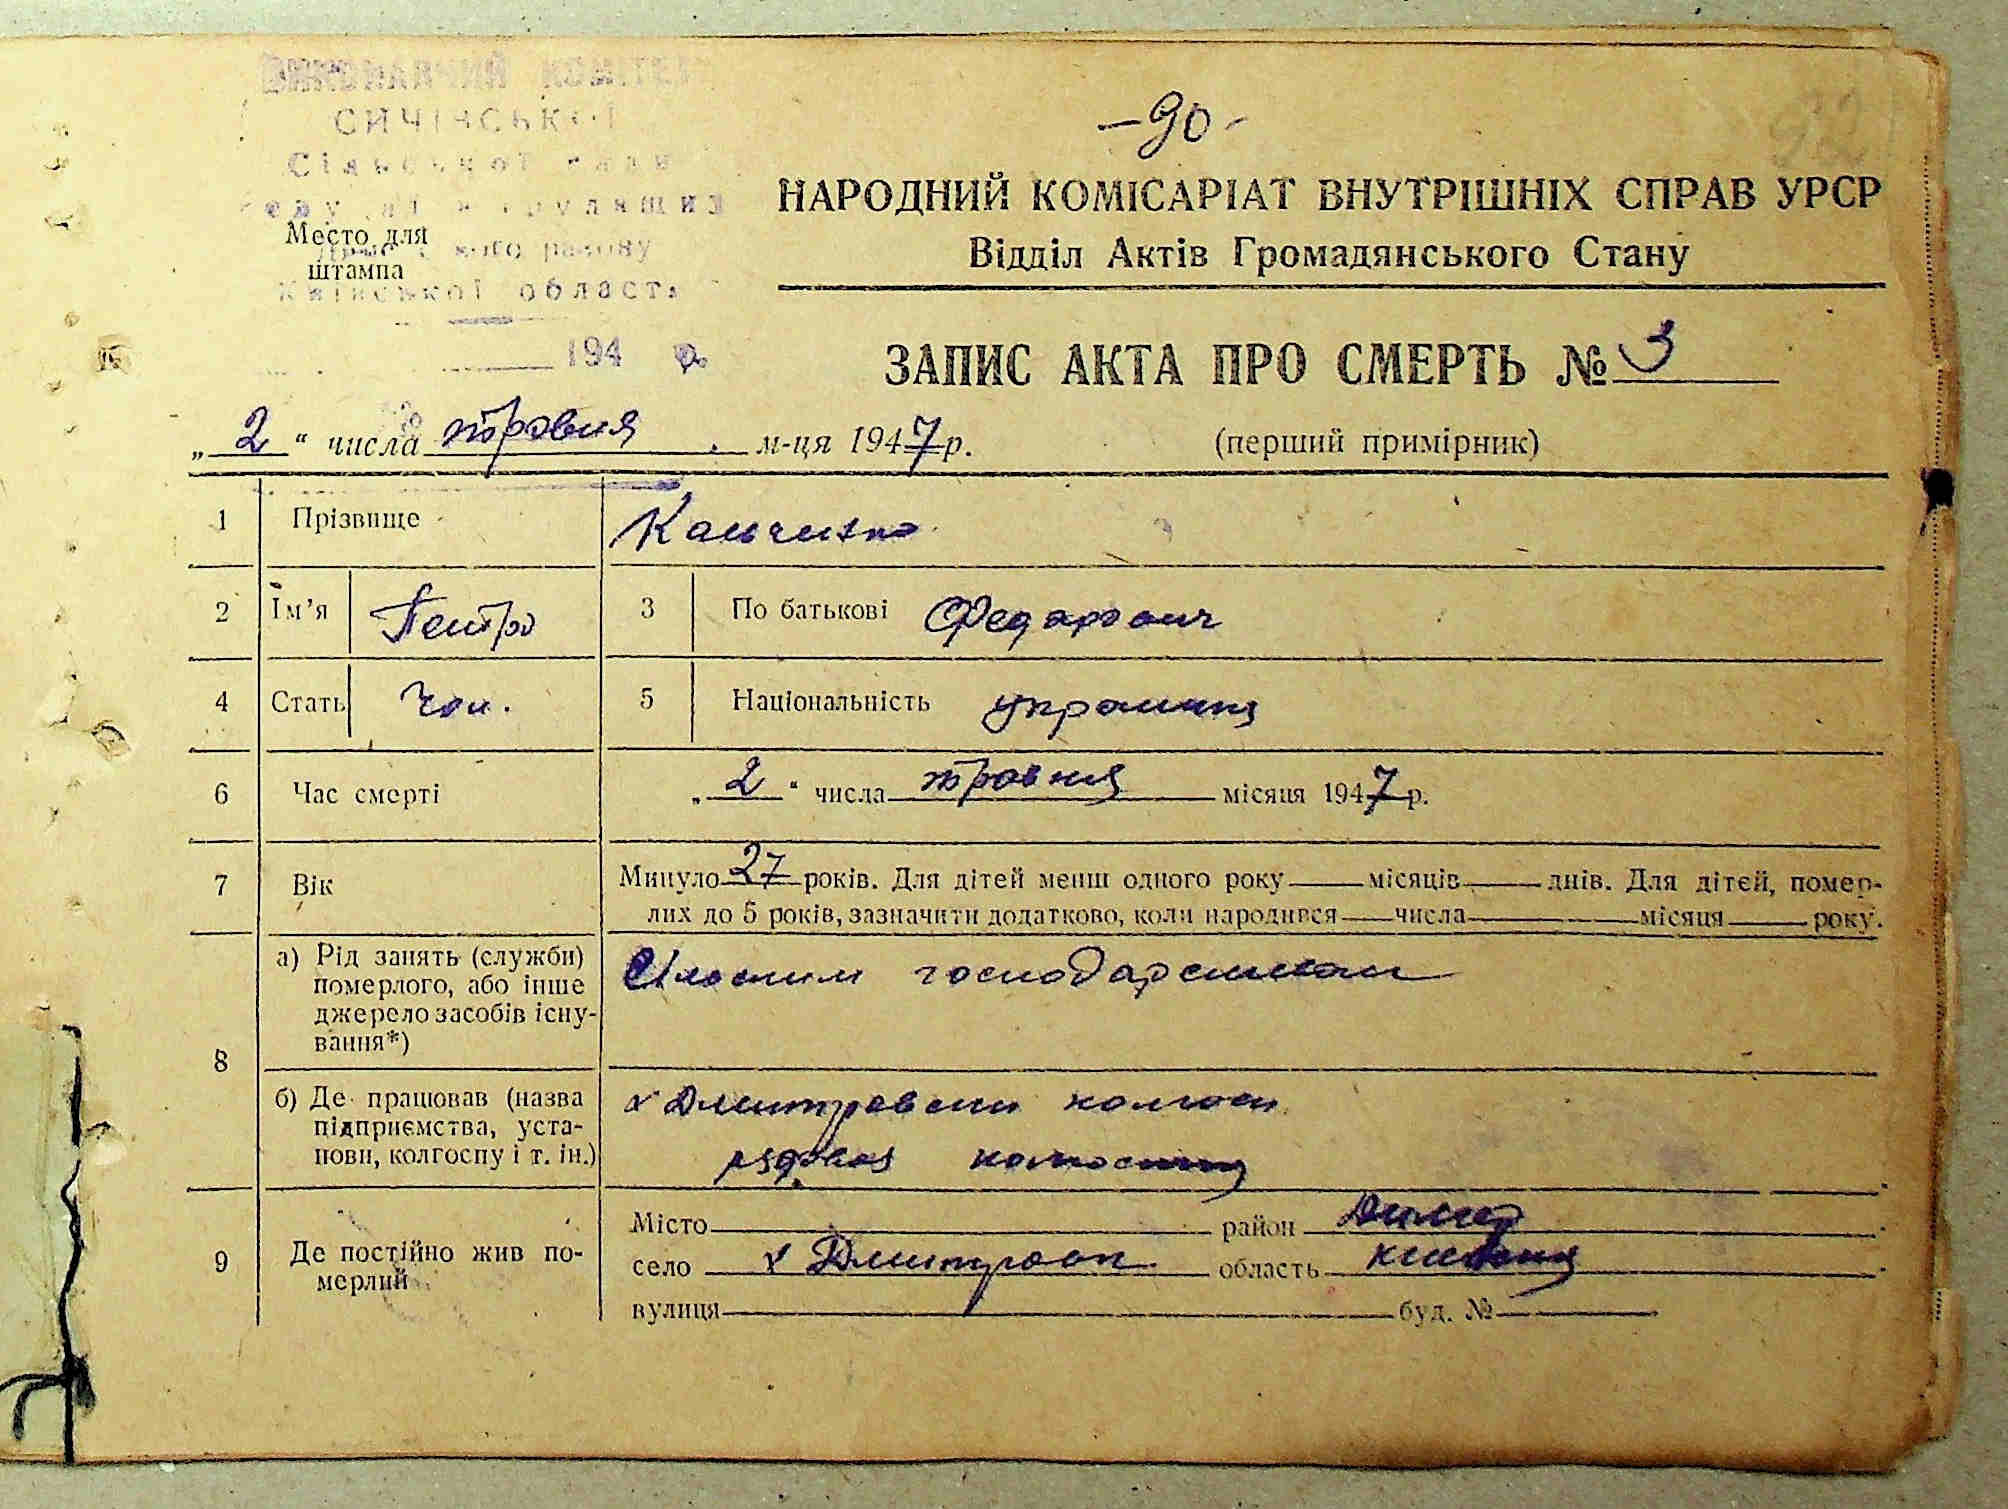 ВИКОНАВЧИЙ КОМІТЕТ
СИЧІВСЬКОЇ
Сільської ради
Место для
штампа
району
Київської області
194 р.
-90-
92
НАРОДНИЙ КОМІСАРІАТ ВНУТРІШНІХ СПРАВ УРСР
Відділ Актів Громадянського Стану
ЗАПИС АКТА ПРО СМЕРТЬ № 3
„2“ числа травня м-ця 1947 р.
(перший примірник)
1 Прізвище Кальченко
2 Ім’я Петро 3 По батькові Федорович
4 Стать чол. 5 Національність
6 Час смерті „2“ числа травня місяця 1947 р.
7 Вік Минуло 27 років. Для дітей менш одного року місяців днів. Для дітей, помер-
лих до 5 років, зазначити додатково, коли народився числа місяця року.
8 а) Рід занять (служби)
померлого, або інше
джерело засобів існу-
вання*)
господарством
б) Де працював (назва
підприємства, уста-
нови, колгоспу і т. ін.)
х Дмитровский колхоз
9 Де постійно жив по-
мерлий
Місто район Димер
село х Дмитровк область
вулиця буд. №